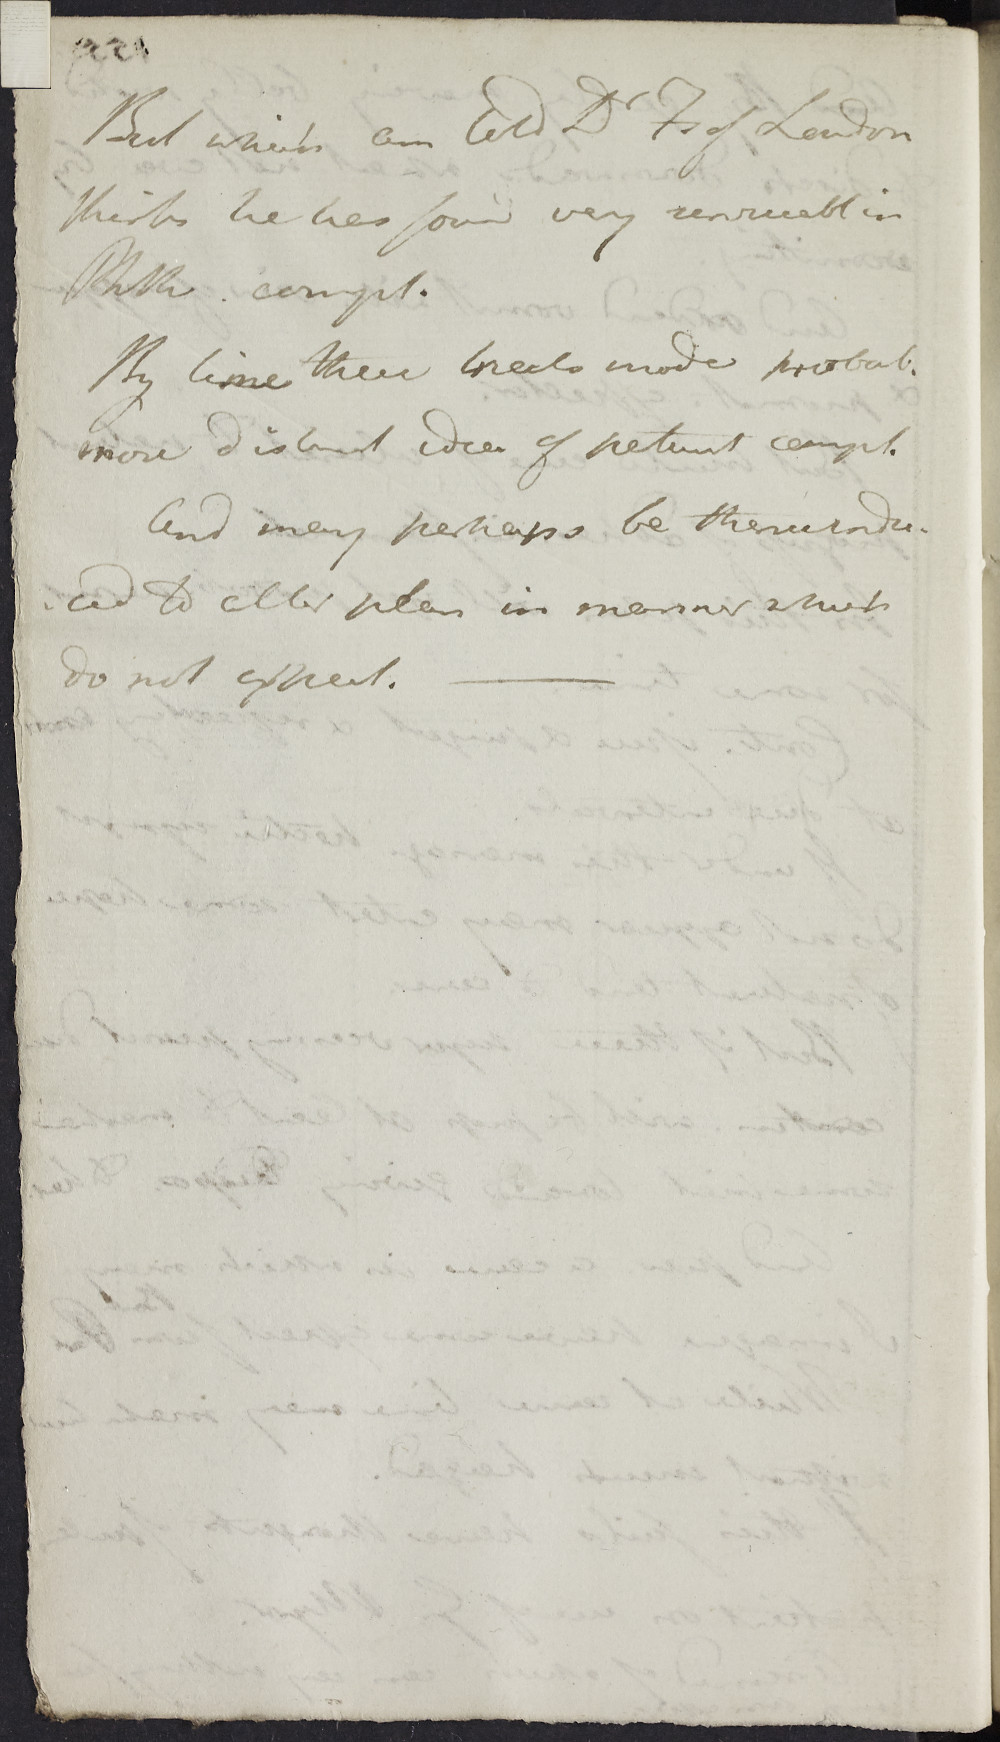 But which am told Dr F. of London
thinks he has foun'd very serviceabl in
Phthi. compl.
By time these tryals made probab.
more distinct idea of patient compl.
And may perhaps be there indu-
-ced to alter plan in manner which
do not expect.